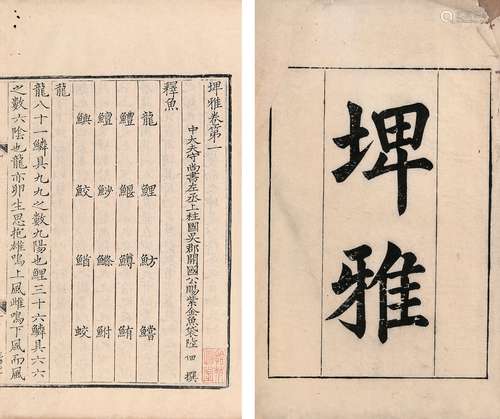 埤雅
埤雅卷第一
中大夫守尚書左丞上柱國吳郡開國公賜紫金魚袋陸 佃 撰
釋魚
龍 鯉 魴 鱨
鱧 鰋 鱒 鮪
鱣 鯋 鰷 鮒
鱮 鮫 鰌 蛟
龍
龍八十一鱗具九九之數九陽也鯉三十六鱗具六六
之數六陰也龍亦卵生思抱雄鳴上風雌鳴下風而風